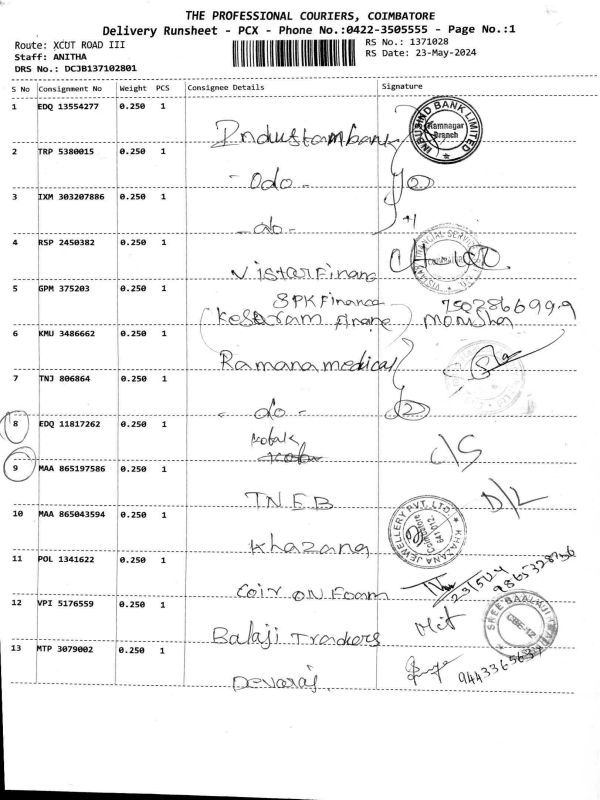 THE PROFESSIONAL COURIERS, COIMBATORE
Delivery Runsheet - PCX - Phone No.:0422-3505555 - Page No.:1
Route: XCUT ROAD III
RS No.: 1371028
Staff: ANITHA
RS Date: 23-May-2024
DRS No.: DCJB137102801
S No Consignment No Weight PCS Consignee Details Signature
1 EDQ 13554277 0.250 1
INDUSIND BANK LIMITED
Ramnagar
Branch
2 TRP 5380015 0.250 1
- do -
3 IXM 303207886 0.250 1
- do -
4 RSP 2450382 0.250 1
Vistar Financ
5 GPM 375203 0.250 1
SPK Finance
Manisha
6 KMU 3486662 0.250 1
Ramana medical
7 TNJ 806864 0.250 1
- do -
8 EDQ 11817262 0.250 1
kotak
C/S
9 MAA 865197586 0.250 1
TNEB
D/L
10 MAA 865043594 0.250 1
KHAZANA JEWELLERY PVT. LTD.
Coimbatore
641 012.
Khazana
11 POL 1341622 0.250 1
Coir ON Foam
23/5/24
12 VPI 5176559 0.250 1
SREE BAALAJI
CBE-12
Balaji Trackors
13 MTP 3079002 0.250 1
Devaraj.